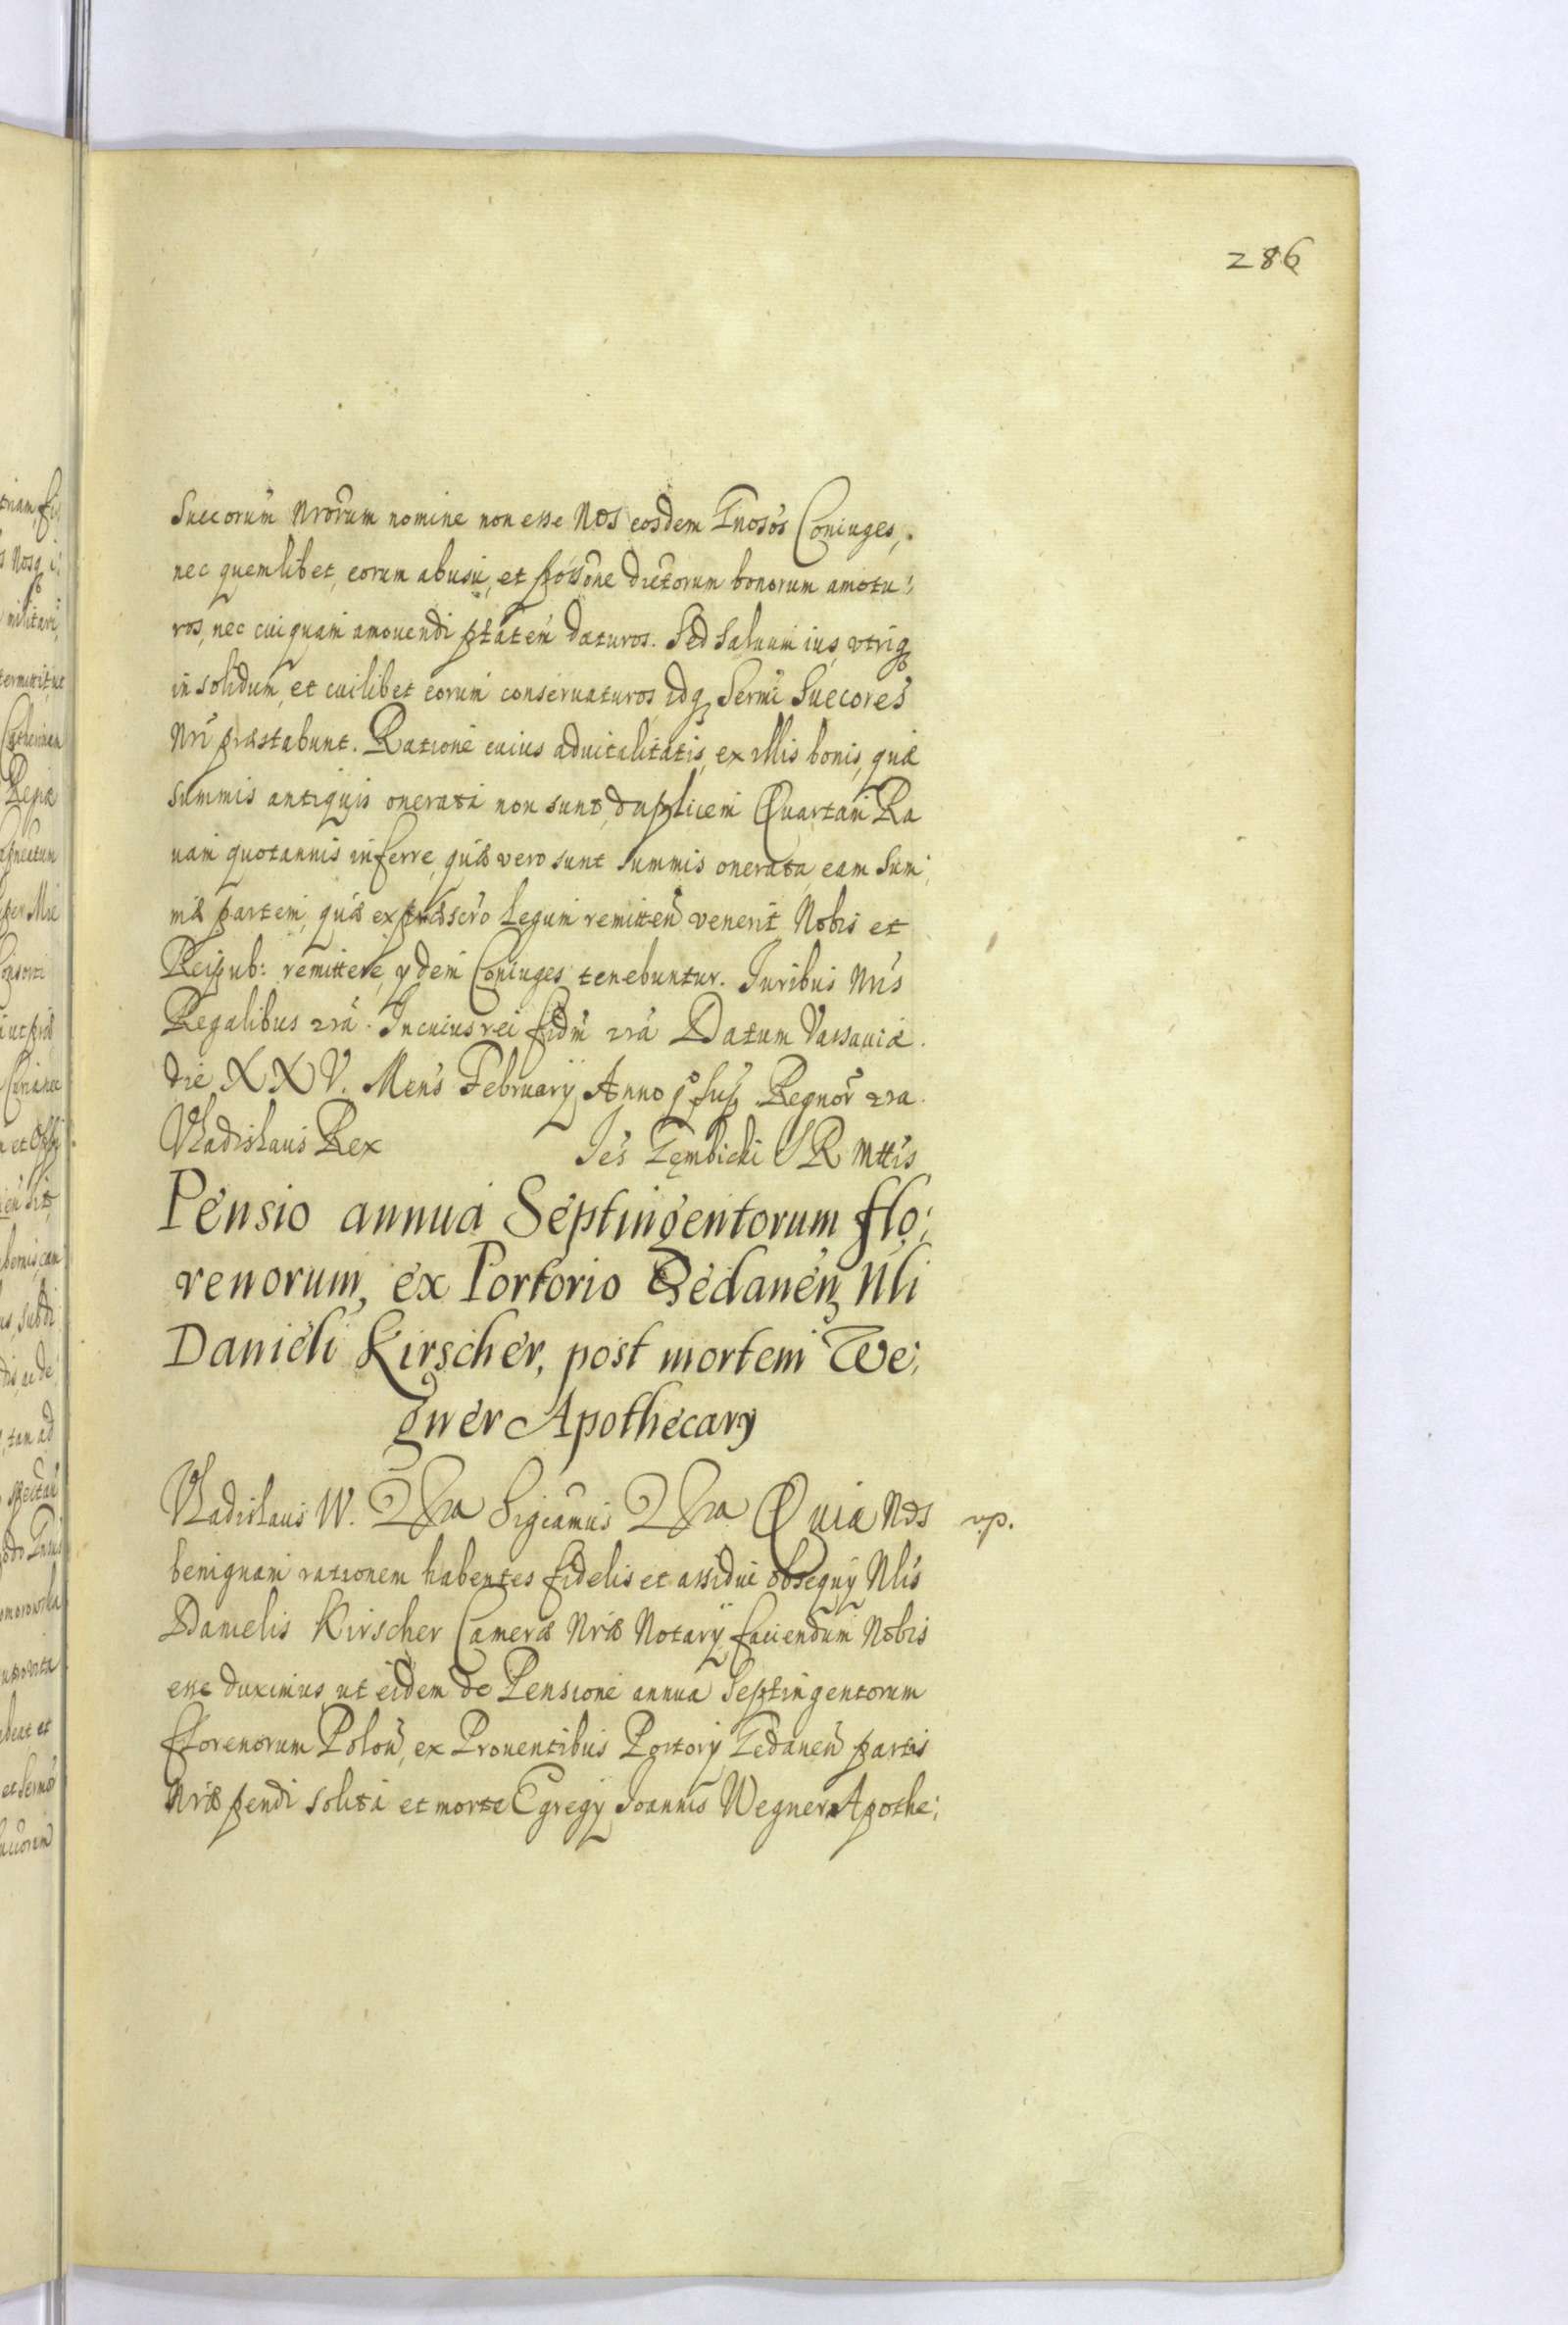 286
Succorum Nrorum nomine non esse Nos eosdem Gnosos Coniuges,
nec quemlibet, eorum ab usu, et possone dictorum bonorum amotu:
ros, nec cuiquam amouendi ptatem daturos. Sed saluum ius, vtriq
in solidum, et cuilibet eorum conseruaturos, idq Sermi Succores
Nri præstabunt. Ratione cuius aduitalitatis, ex illis bonis, quæ
summis antiquis onerata non sunt, duplicem Quartam Ra
uam quotannis inferre, quæ vero sunt summis onerata, eam Sum:
mæ partem, quæ ex præscro legum remitten venerit Nobis et
Reipub: remittere, ydem Coniuges tenebuntur. Juribus Nris
Regalibus 2ra. In cuius rei fidm 2ra Datum Varsauiæ.
die XXV. Mens February Anno p° sup Regnor 2ra.
Vladislaus Rex Jes Gembicki SR Mttis
Pensio annua Septingentorum flo:
renorum, ex Portorio Gedanen Nli
Danieli Kirscher, post mortem We:
gner Apothecary
Vladislaus IV. 2ra Sigcamus 2ra Quia Nos v.p.
benignam rationem habentes fidelis et assidui obsequy Nlis
Danielis Kirscher Cameræ Nræ Notary, faciendum Nobis
esse duximus, ut eidem de Pensione annua Septingentorum
florenorum Polon, ex Prouentibus Portory Gedanen partis
Nræ pendi solita et morte Egregy Joannis Wegner Apothe: